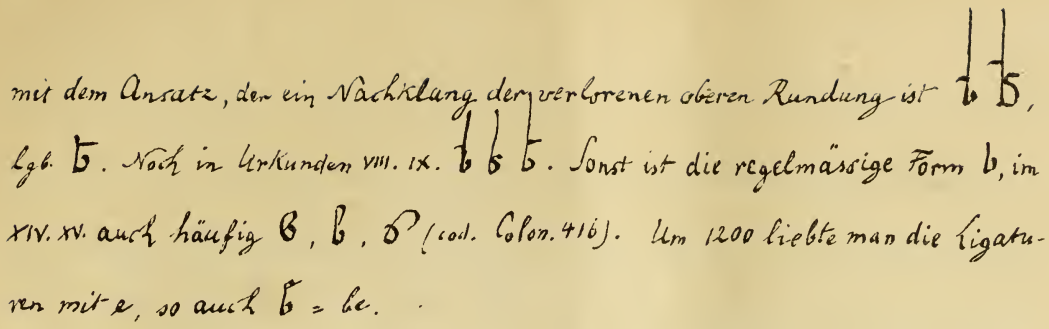 mit dem Ansatz, der ein Nachklang der verlorenen oberen Rundung ist b b,
lgb. b. Noch in Urkunden VIII. IX. b b b. Sonst ist die regelmässige Form b, im
XIV. XV. auch häufig b, b, b (cod. Colon. 416). Um 1200 liebte man die Ligatu-
ren mit e, so auch b = be.